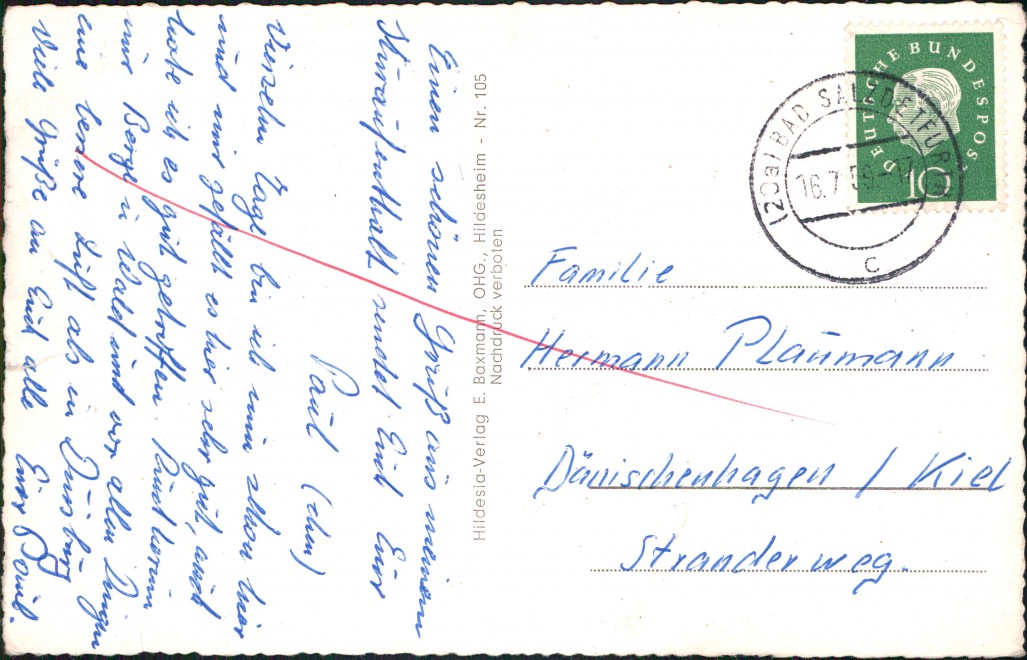 Einen schönen Gruß aus meinem
Kuraufenthalt sendet Euch Euer
Paul (chen)
Vierzehn Tage bin ich nun schon hier
und mir gefällt es hier sehr gut, auch
habe ich es gut getroffen. Rund herum
nur Berge u. Wald und vor allen Dingen
eine bessere Luft als in Duisburg
Viele Grüße an Euch alle Euer Paul.
Hildesia-Verlag E. Baxmann, OHG., Hildesheim - Nr. 105
Nachdruck verboten
DEUTSCHE BUNDESPOST
10
(20a) BAD SALZDETFURTH
16.7.59-17
c
Familie
Hermann Plaumann
Dänischenhagen / Kiel
Stranderweg.